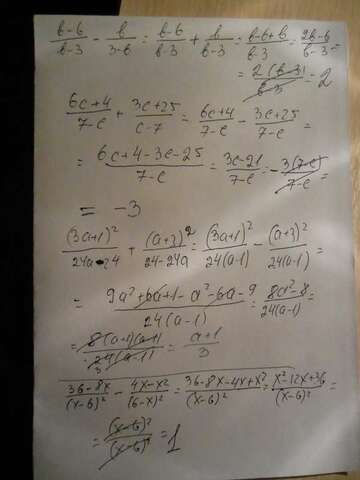 в-6/в-3 - в/3-в = в-6/в-3 + в/в-3 = в-6+в/в-3 = 2в-6/в-3 =
= 2(в-3)/в-3 = 2
6c+4/7-c + 3c+25/c-7 = 6c+4/7-c - 3c+25/7-c =
= 6c+4-3c-25/7-c = 3c-21/7-c = -3(7-c)/7-c =
= -3
(3a+1)²/24a-24 + (a+3)²/24-24a = (3a+1)²/24(a-1) - (a+3)²/24(a-1) =
= 9a²+6a+1-a²-6a-9/24(a-1) = 8a²-8/24(a-1) =
= 8(a-1)(a+1)/24(a-1) = a+1/3
36-8x/(x-6)² - 4x-x²/(6-x)² = 36-8x-4x+x²/(x-6)² = x²-12x+36/(x-6)² =
= (x-6)²/(x-6)² = 1